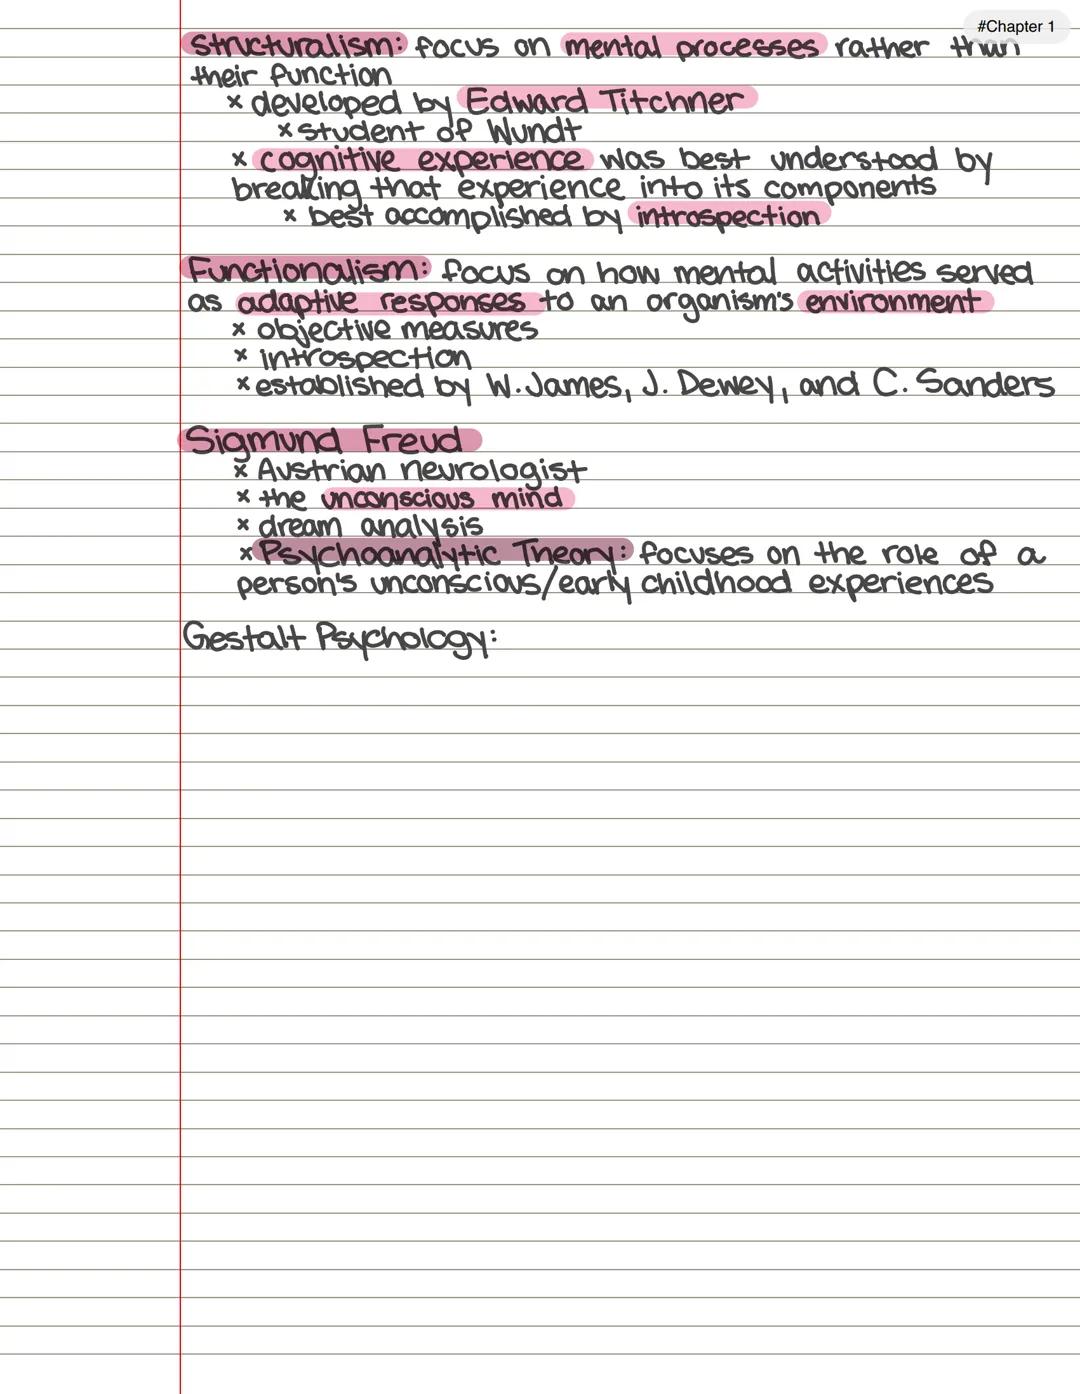 #Chapter 1
Structuralism: focus on mental processes rather than
their function
x developed by Edward Titchner
x student of Wundt
x cognitive experience was best understood by
breaking that experience into its components
x best accomplished by introspection
Functionalism: focus on how mental activities served
as adaptive responses to an organism's environment
x objective measures
x introspection
x established by W. James, J. Dewey, and C. Sanders
Sigmund Freud
x Austrian neurologist
x the unconscious mind
x dream analysis
x Psychoanalytic Theory: focuses on the role of a
person's unconscious/early childhood experiences
Gestalt Psychology: